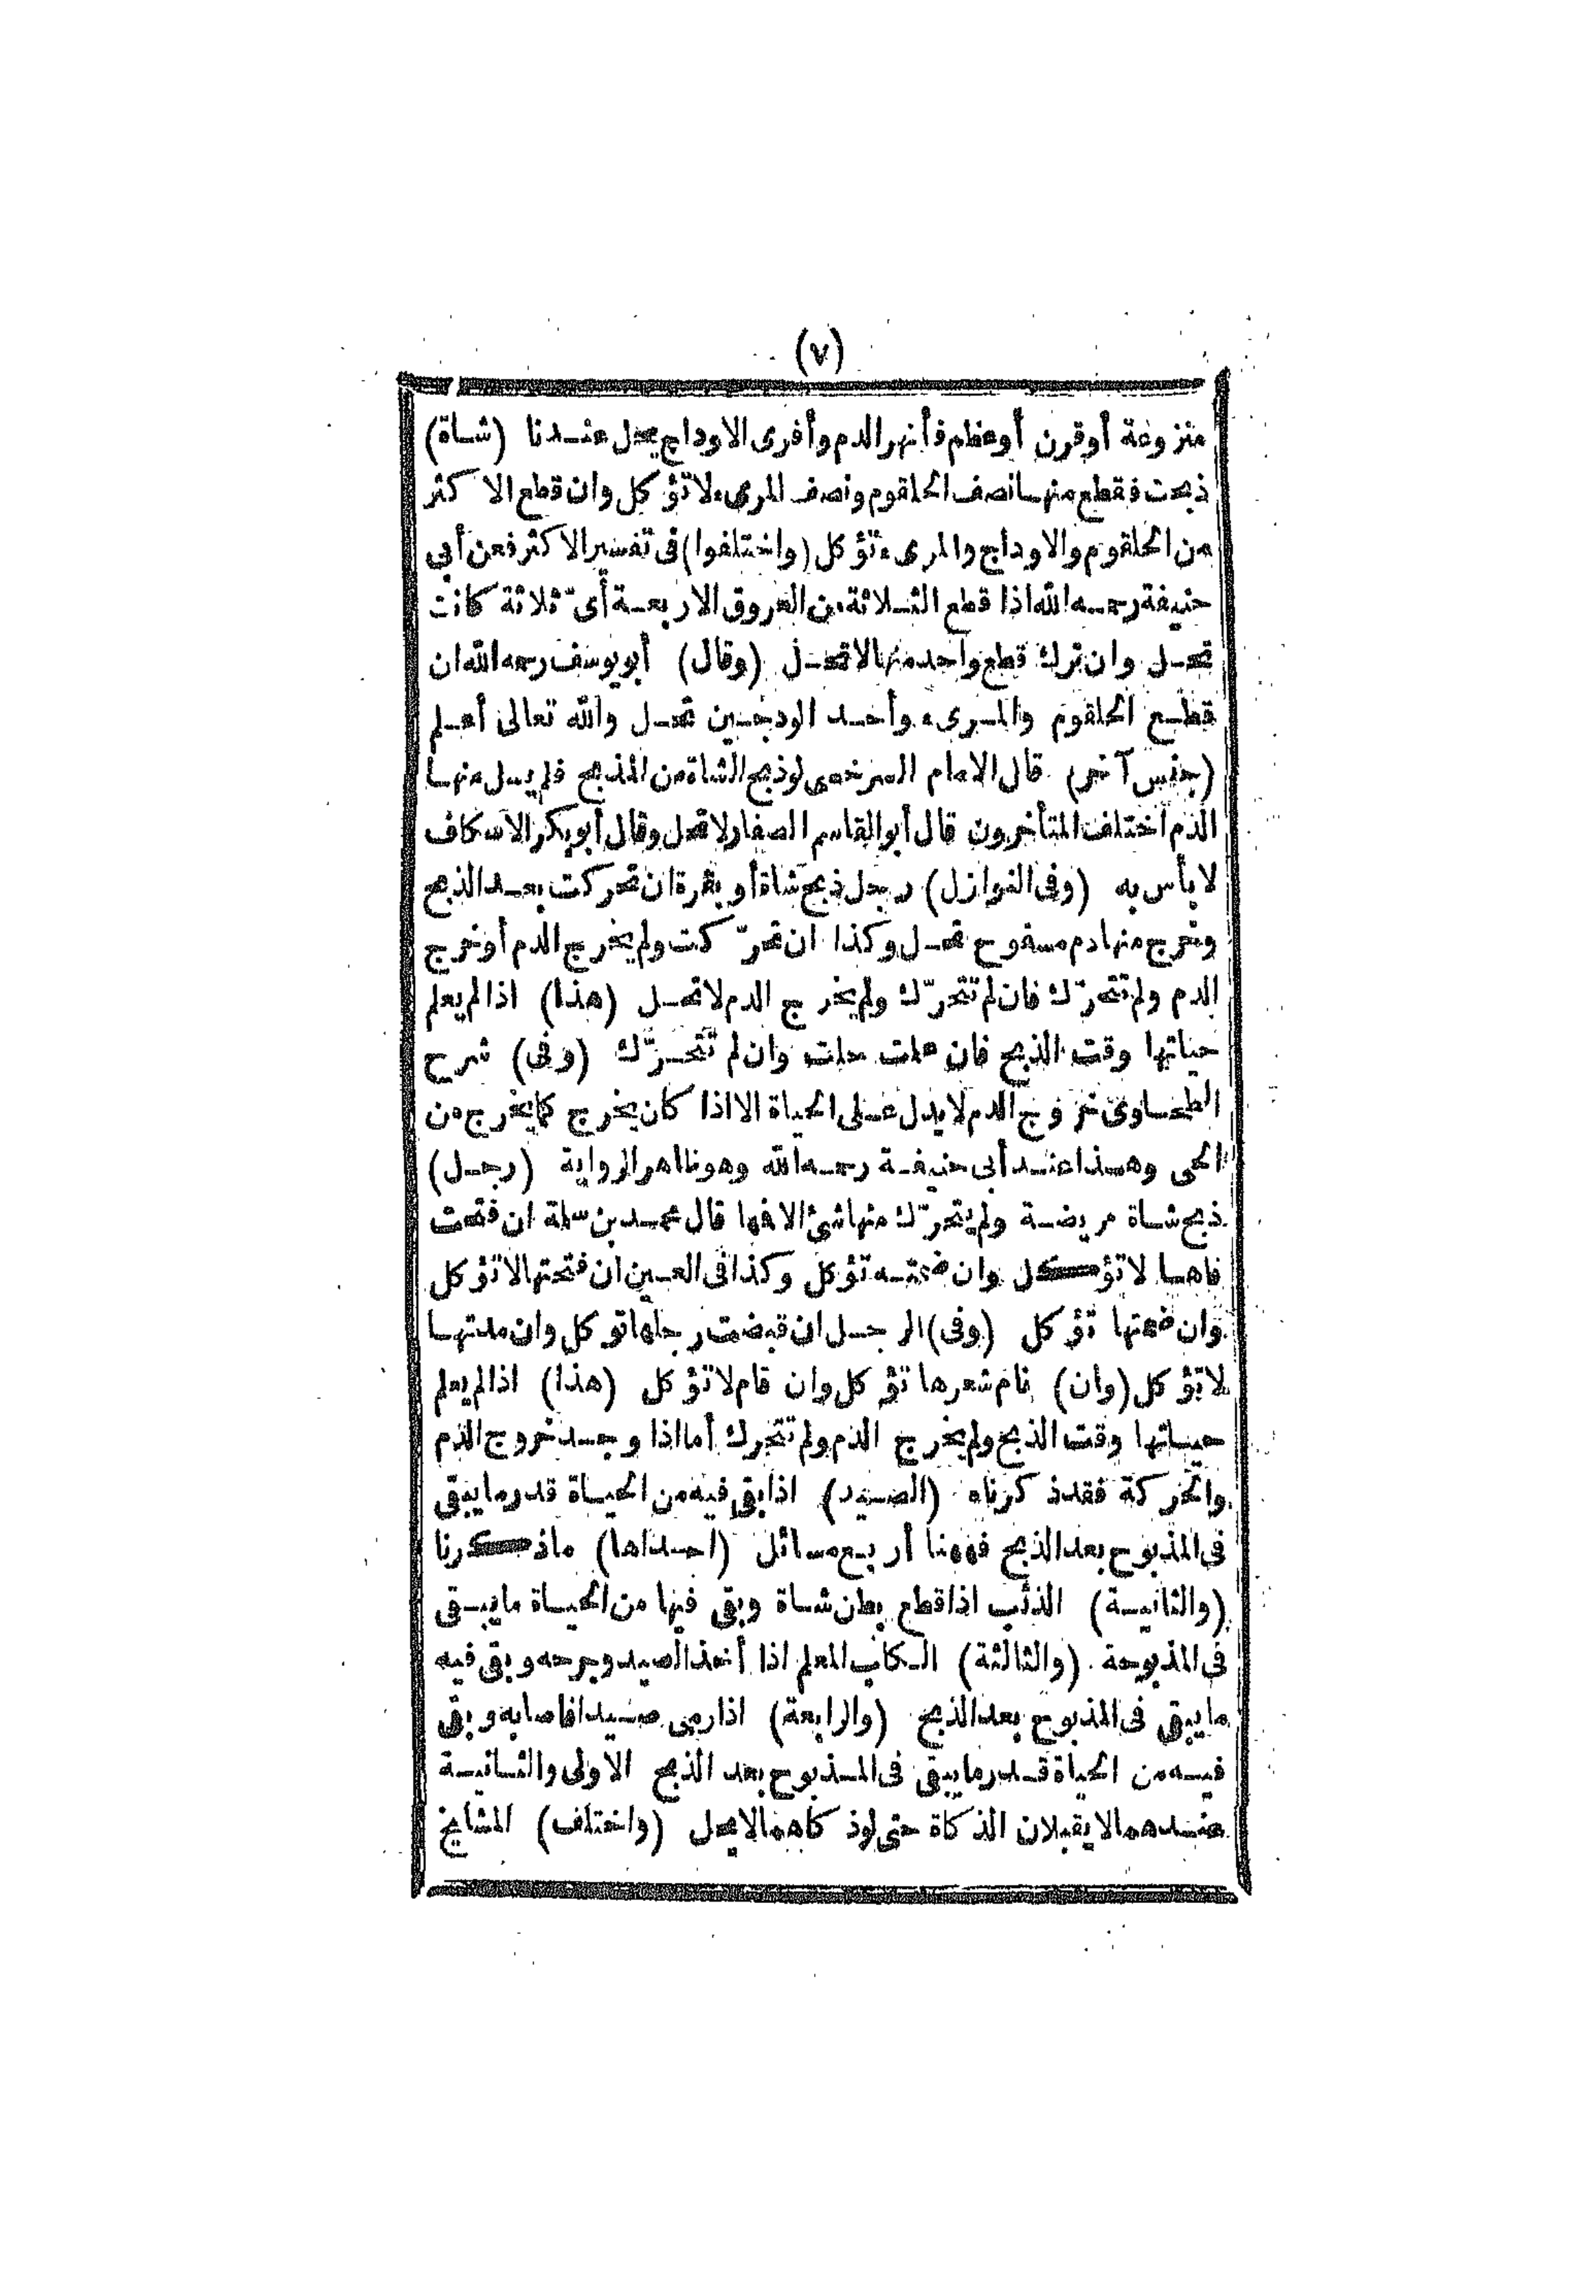 (٧)
منزوعة أو قرن أو عظم فأنهر الدم وأفرى الاوداج يحل عندنا (شاة)
ذبحت فقطع منها نصف الحلقوم ونصف المرىء لا تؤكل وان قطع الاكثر
من الحلقوم والاوداج والمرىء تؤكل (واختلفوا) فى تفسير الاكثر فعن أبى
حنيفة رحمه الله اذا قطع الثلاثة من العروق الاربعة أىّ ثلاثة كانت
تحل وان ترك قطع واحد منها لا تحل (وقال) أبو يوسف رحمه الله ان
قطع الحلقوم والمرىء وأحد الودجين تحل والله تعالى أعلم
(جنس آخر) قال الامام السرخسى لو ذبح الشاة من المذبح فلم يسل منها
الدم اختلف المتأخرون قال أبو القاسم الصفار لا تحل وقال أبو بكر الاسكاف
لا بأس به (وفى النوازل) رجل ذبح شاة أو بقرة ان تحركت بعد الذبح
وخرج منها دم مسفوح تحل وكذا ان تحرّكت ولم يخرج الدم أو خرج
الدم ولم تتحرّك فان لم تتحرّك ولم يخرج الدم لا تحل (هذا) اذا لم يعلم
حياتها وقت الذبح فان علمت حلت وان لم تتحرّك (وفى) شرح
الطحاوى خروج الدم لا يدل على الحياة الا اذا كان يخرج كما يخرج من
الحى وهذا عند أبى حنيفة رحمه الله وهو ظاهر الرواية (رجل)
ذبح شاة مريضة ولم يتحرّك منها شئ الا فها قال محمد بن سلمة ان فتحت
فاها لا تؤكل وان ضمته تؤكل وكذا فى العين ان فتحتها لا تؤكل
وان ضمتها تؤكل (وفى) الرجل ان قبضت رجلها توكل وان مدتها
لا تؤكل (وان) نام شعرها تؤكل وان قام لا تؤكل (هذا) اذا لم يعلم
حياتها وقت الذبح ولم يخرج الدم ولم تتحرك أما اذا وجد خروج الدم
والحركة فقد ذكرناه (الصيد) اذا بقى فيه من الحياة قدر ما يبقى
فى المذبوح بعد الذبح فههنا أربع مسائل (احداها) ما ذكرنا
(والثانية) الذئب اذا قطع بطن شاة وبقى فيها من الحياة ما يبقى
فى المذبوحة (والثالثة) الكلب المعلم اذا أخذ الصيد وجرحه وبقى فيه
ما يبقى فى المذبوح بعد الذبح (والرابعة) اذا رمى صيدا فاصابه وبقى
فيه من الحياة قدر ما يبقى فى المذبوح بعد الذبح الاولى والثانية
عندهما لا يقبلان الذكاة حتى لو ذكاهما لا يحل (واختلف) المشايخ